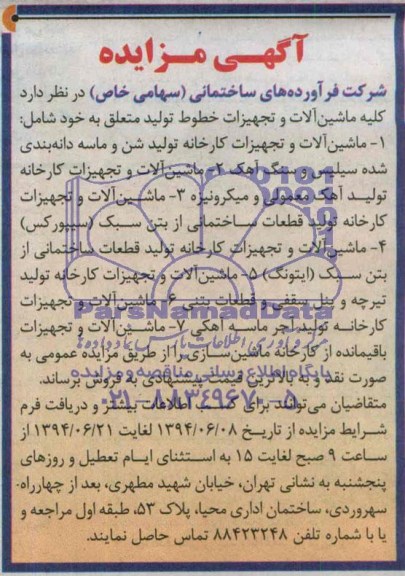 آگهـی مـزایده
شرکت فرآورده‌های ساختمانی (سهامی خاص) در نظر دارد
کلیه ماشین‌آلات و تجهیزات خطوط تولید متعلق به خود شامل:
۱- ماشین‌آلات و تجهیزات کارخانه تولید شن و ماسه دانه‌بندی
شده سیلیس و سنگ آهک ۲- ماشین‌آلات و تجهیزات کارخانه
تولیـد آهک معمولی و میکرونیزه ۳- ماشـین‌آلات و تجهیزات
کارخانه تولید قطعات سـاختمانی از بتن سـبک (سیپورکس)
۴- ماشین‌آلات و تجهیزات کارخانه تولید قطعات ساختمانی از
بتن سـبک (ایتونگ) ۵- ماشین‌آلات و تجهیزات کارخانه تولید
تیرچه و پنل سقفی و قطعات بتنی ۶- ماشین‌آلات و تجهیزات
ParsNamadData
کارخانـه تولید آجر ماسـه آهکی ۷- ماشـین‌آلات و تجهیزات
باقیمانده از کارخانه ماشین‌سـازی را از طریق مزایده عمومی به
پایگاه اطلاع رسانی مناقصه و مزایده
صورت نقد و به بالاترین قیمت پیشنهادی به فروش برساند.
۰۲۱-۸۸۳۴۹۶۷۰-۵
متقاضیان می‌توانند برای کسب اطلاعات بیشتر و دریافت فرم
شرایط مزایده از تاریخ ۱۳۹۴/۰۶/۰۸ لغایت ۱۳۹۴/۰۶/۲۱ از
ساعت ۹ صبح لغایت ۱۵ به استثنای ایـام تعطیل و روزهای
پنجشنبه به نشانی تهران، خیابان شهید مطهری، بعد از چهارراه
سهروردی، ساختمان اداری محیا، پلاک ۵۳، طبقه اول مراجعه و
یا با شماره تلفن ۸۸۴۲۳۲۴۸ تماس حاصل نمایند.